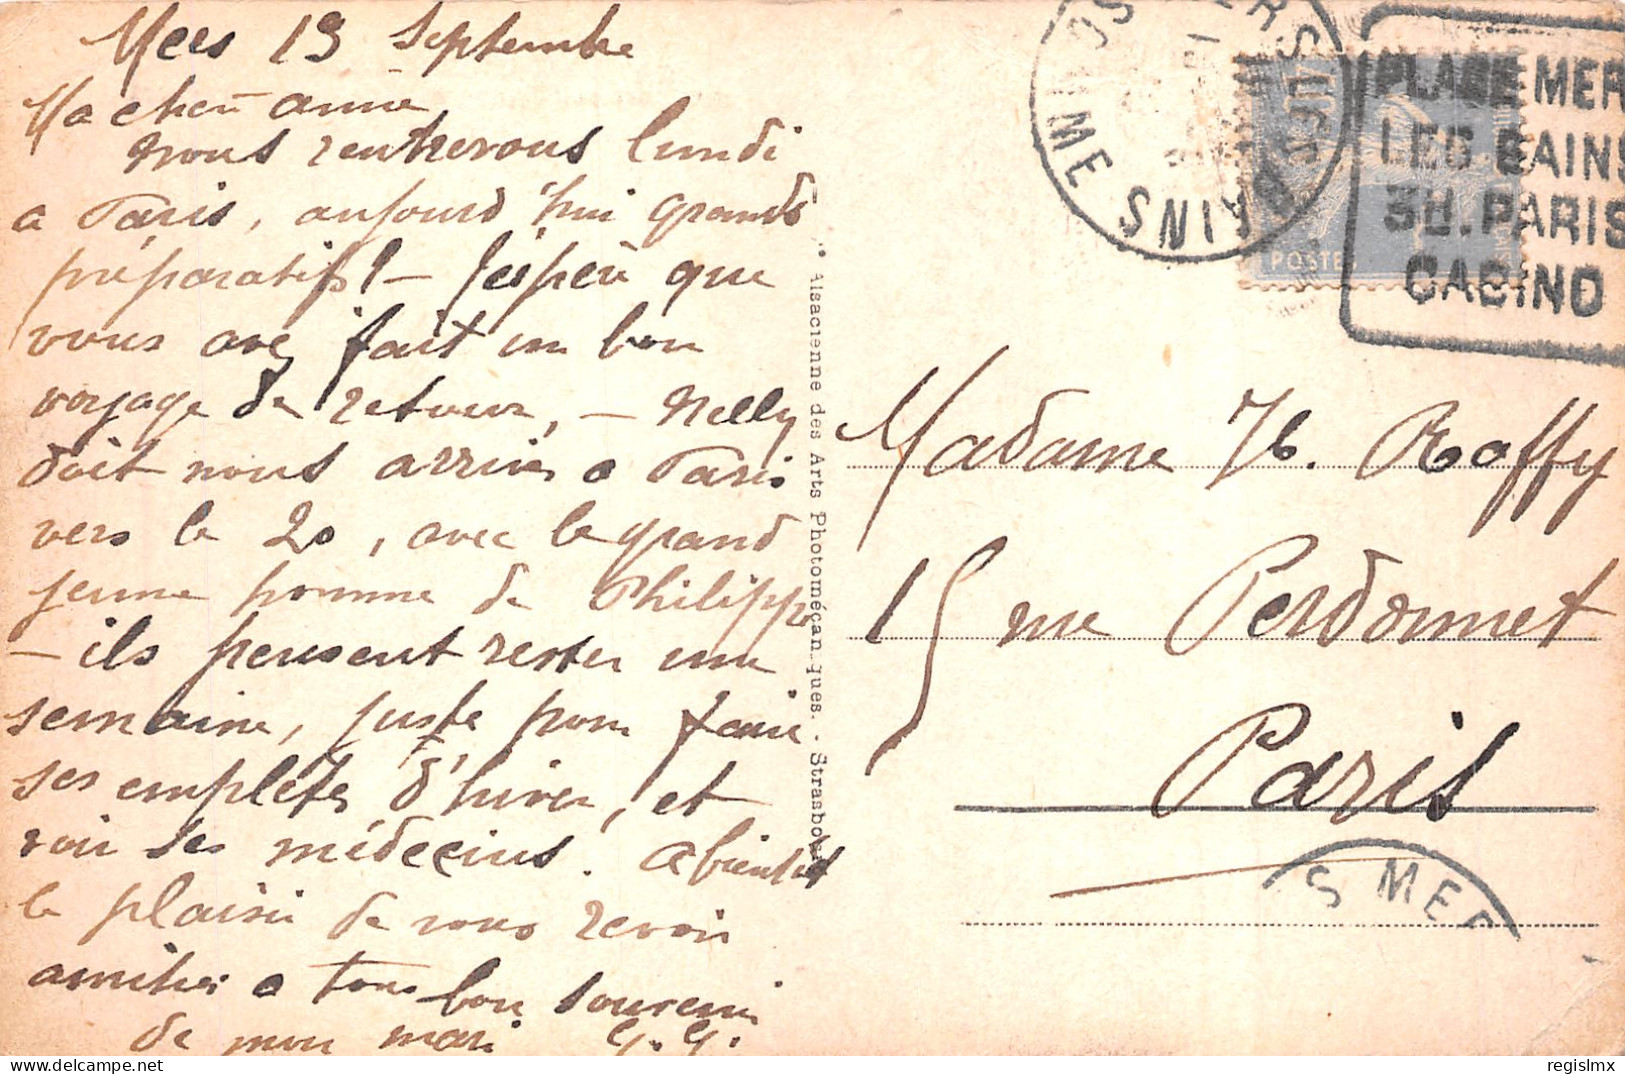 Mers 19 Septembre
Ma chère amie
nous rentrerons lundi
a Paris, aujourd'hui grands
préparatifs! – J'espère que
vous avez fait un bon
voyage de retour, – Nelly
doit nous arriver a Paris
vers le 20, avec le grand
jeune homme de Philippe
– ils pensent rester une
semaine, juste pour faire
ses emplètes d'hiver, et
voir ses médecins. a bientot
le plaisir de vous revoir
amitiés a tous bon souvenir
de mon mari G.G.
Alsacienne des Arts Photomécaniques. - Strasbourg
MERS LES BAINS
SOMME
POSTES
PLAGE MER
LES BAINS
3H. PARIS
CASINO
Madame H. Roffy
15 rue Perdonnet
Paris
S MER
regislmx